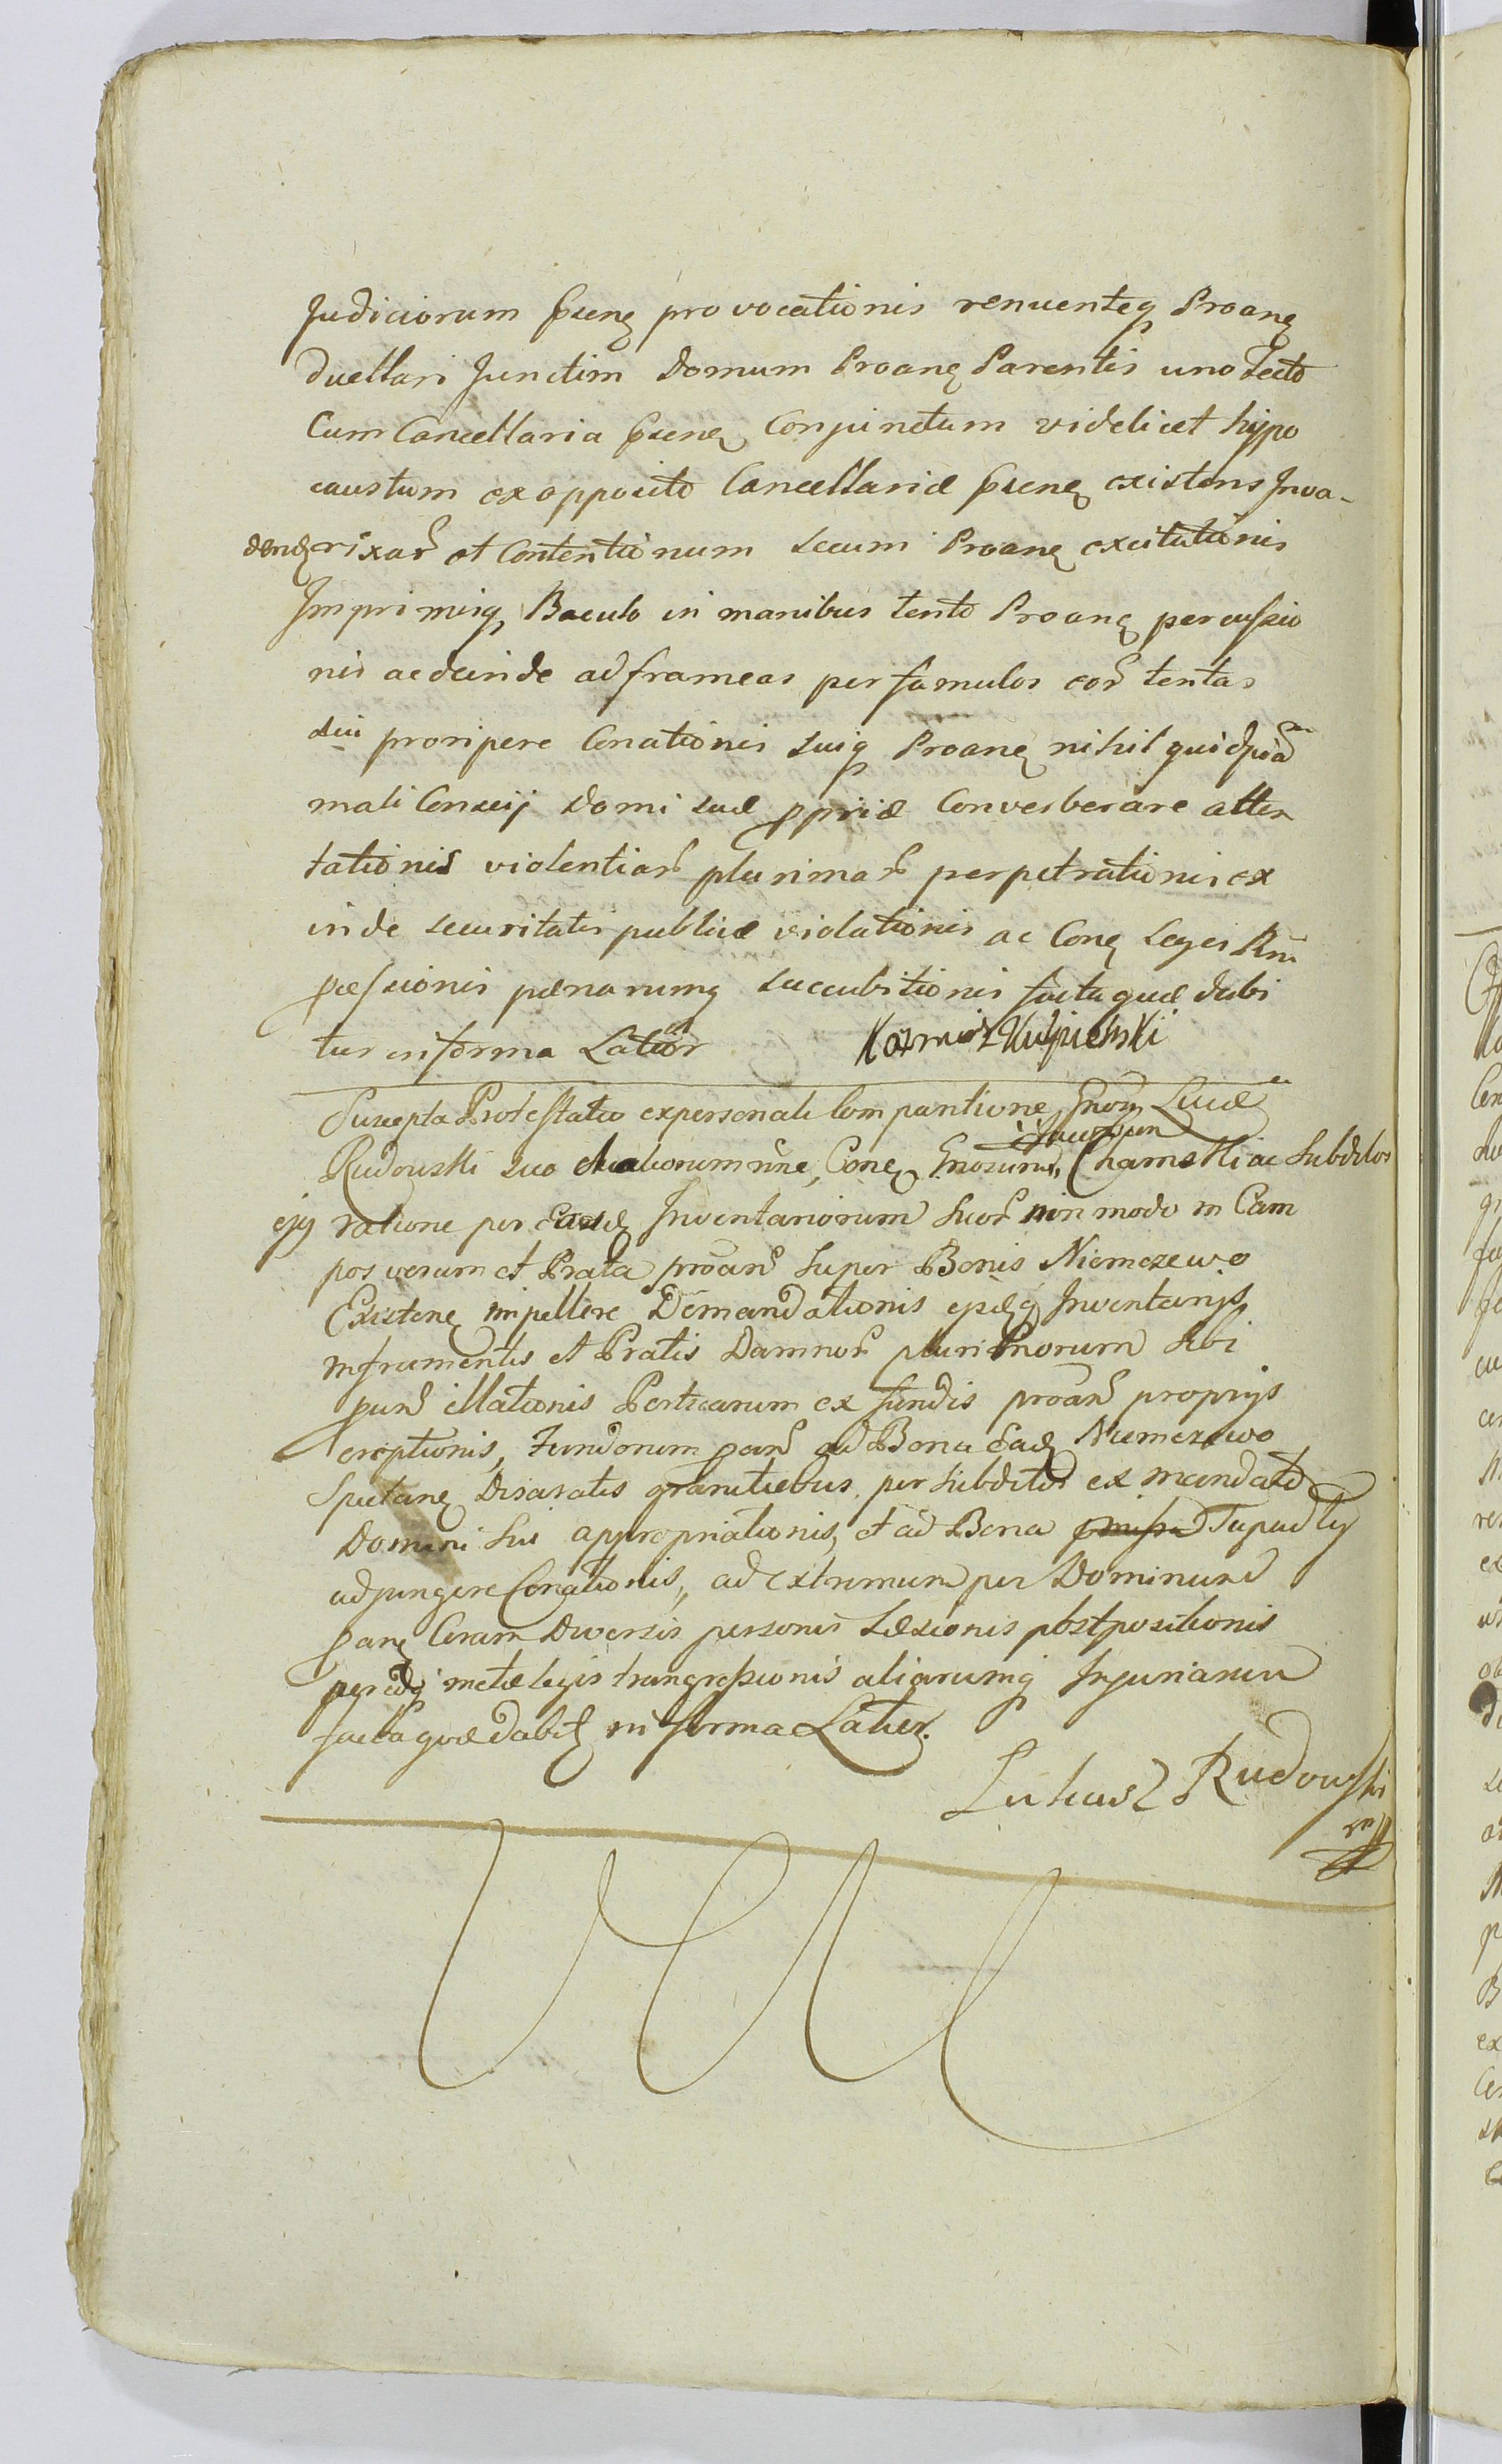 Judiciorum pñenꝫ provocationis renuentęq Proanꝫ
duellari Junctim Domum Proanꝫ Parentis uno Tecto
Cum Cancellaria pñenꝫ Conjunctum videlicet hypo
caustum ex opposito Cancellariæ pñenꝫ existens Inva-
dendꝫ rixar̃ et Contentionum secum Proanꝫ excitationis
Imprimisq Baculo in manibus tento Proanꝫ percussio
nis ac deinde ad frameas per famulos eor̃ tentas
sui proripere Conationis suiq Proanꝫ nihil quidpiam
mali Conscij Domi suæ ppriæ Converberare atten
tationis violentiar̃ plurimar̃ perpetrationis ex
inde securitatis publicæ violationis ac Conꝫ Leges Rni
pæssionis pænarumq succubitionis facta quæ dabi
tur in forma Latiori
Kazmierz Kulpiewski
Suscepta Protestatio ex personali Comparitione Gnosi Lucæ
Rudowski suo et aliorum nñe, Conꝫ Gnosum Chamski ac Subditos
ejq ratione per eosdꝫ Inventariorum suor̃ non modo in Cam
pos verum et Prata proanr̃ super Bonis Niemczewo
Existenꝫ impellere Demandationis ejsdꝫq Inventarijs
in frumentis et Pratis Damnor̃ plurimorum sibi
illationis Perticarum ex fundis proanr̃ proprijs
ereptionis, Fundorum panr̃ ad Bona eadꝫ Niemczewo
Spectanꝫ Disaratis granitiebus per subditos ex mandato
Domini sui appropriationis, et ad Bona Tupadly
adjungere Conationis, ad extremum per Dominum
panꝫ Coram Diversis personis Læsionis postpositionis
metæ legis transgressionis aliarumq Injuriarum
facta quæ dabitꝫ in forma Latior.
Lukasz Rudowski